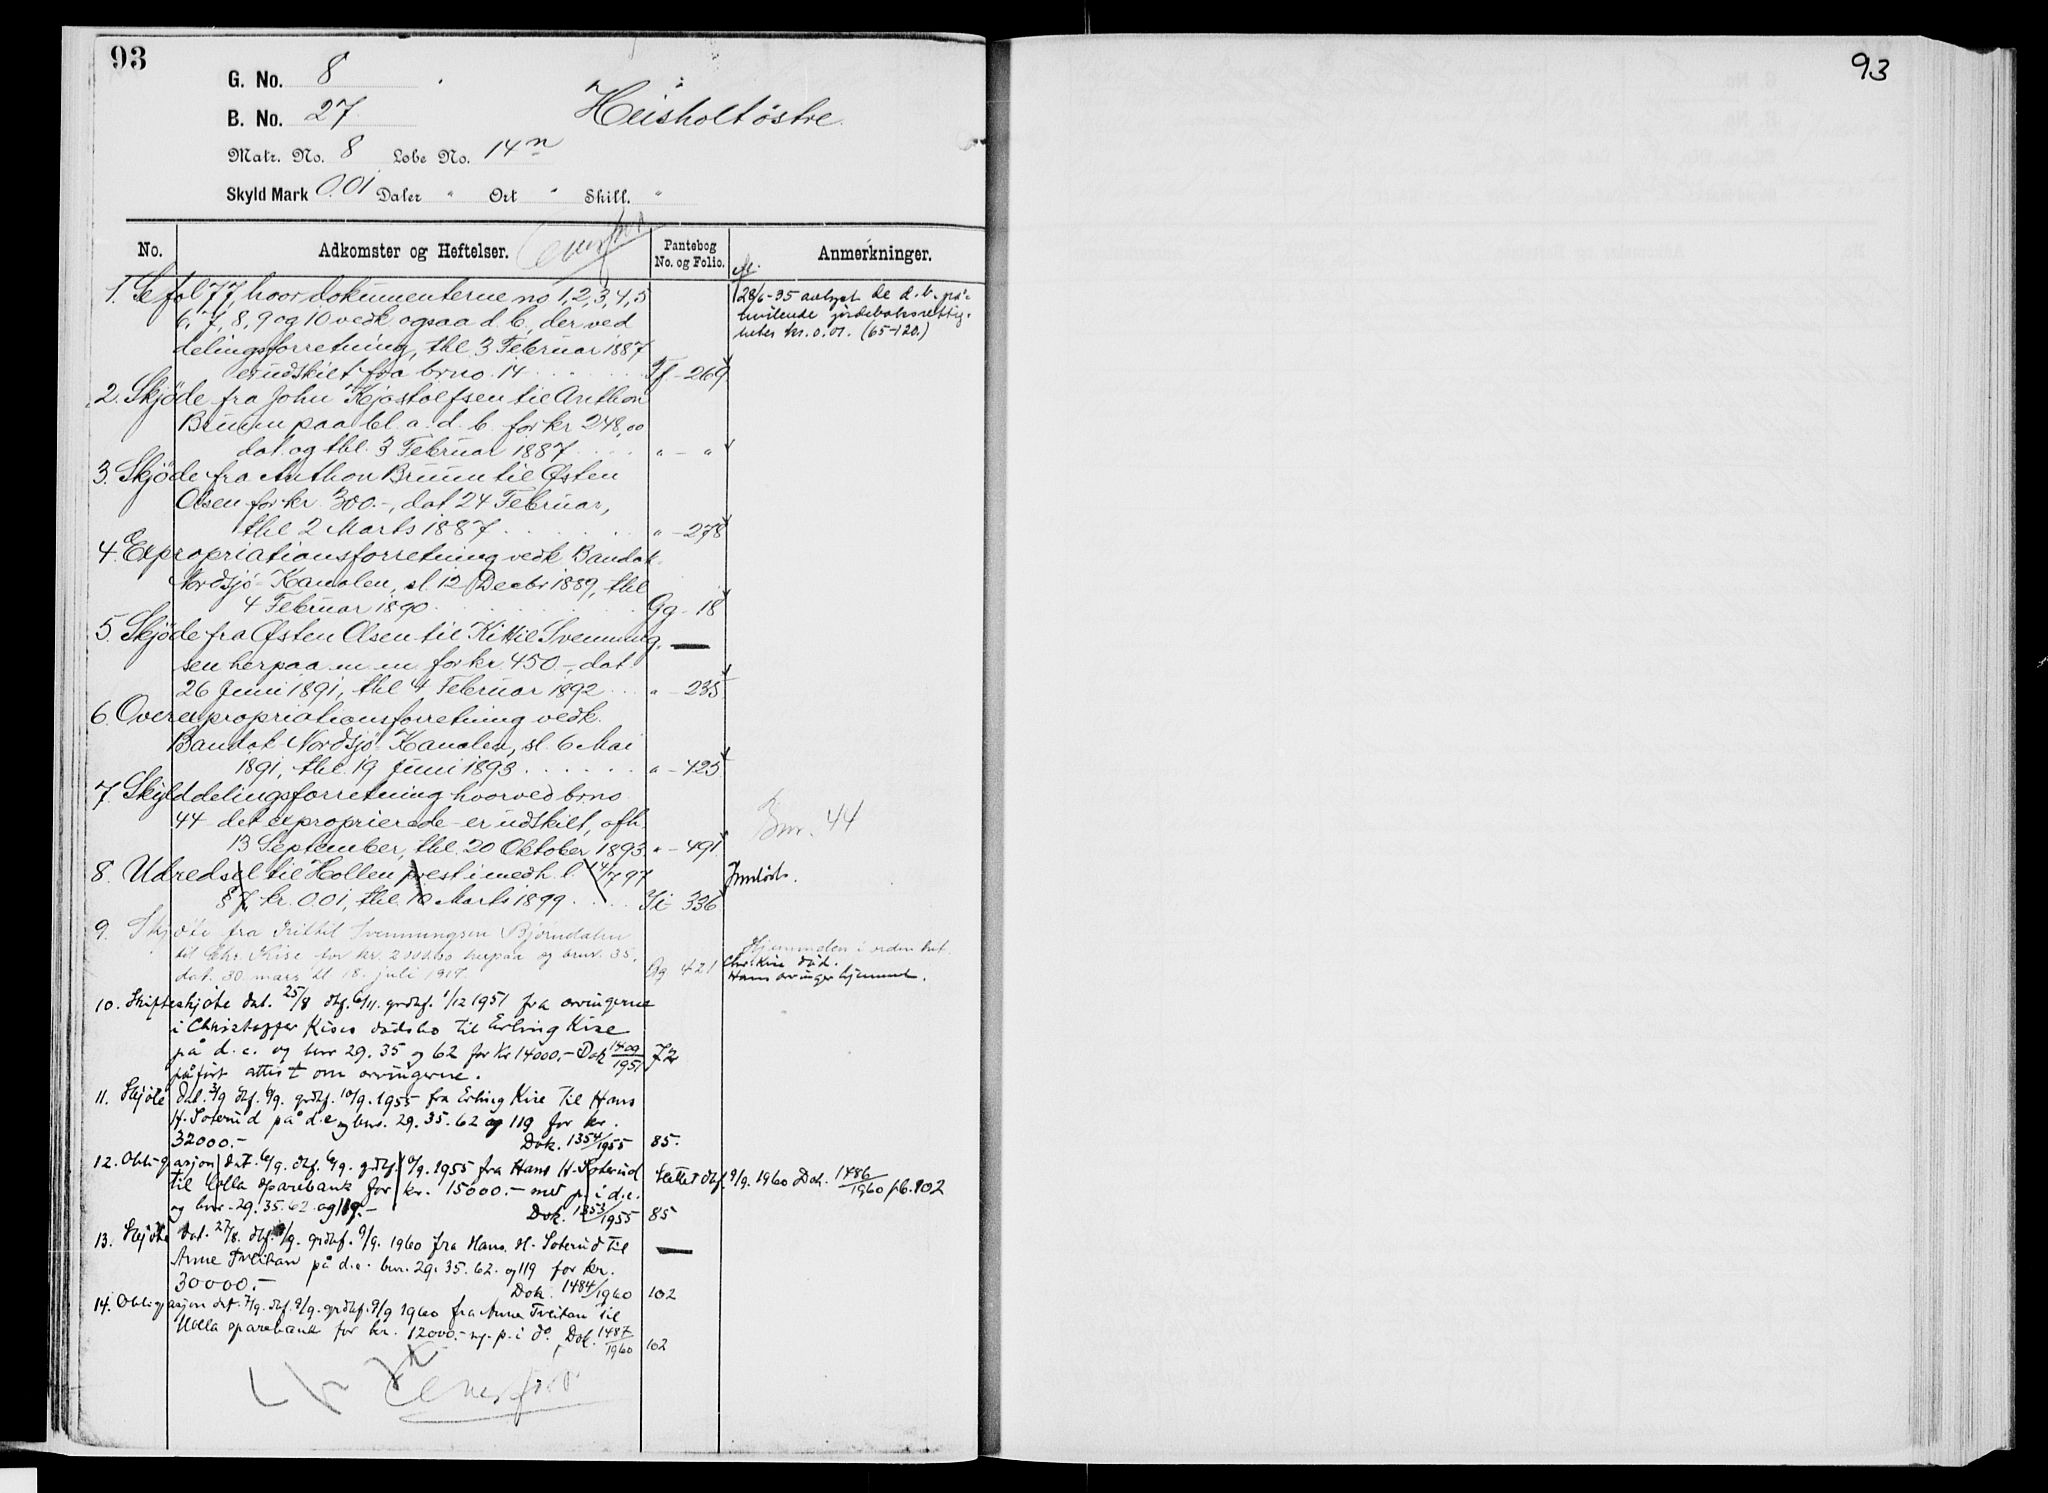 93
G. No. 8
B. No. 27
Heisholt østre
Matr. No. 8 Løbe No. 14 n
Skyld Mark 0.01 Daler " Ort " Skill. "
No. Adkomster og Heftelser. Pantebog No. og Folio. Anmerkninger.
Overført
1. Se fol 77, hvor dokumenterne no 1, 2, 3, 4, 5
6, 7, 8, 9 og 10 vedk ogsaa d. b., der ved
delingsforretning, thl. 3 Februar 1887
er udskilt fra brno. 14 . . . . Ff - 269
28/6-35 avlyst de d. b. på-
hvilende jordeboksrettig-
heter kr. 0.01. (65-120.)
2. Skjøde fra John Kjøstolfsen til Anthon
Bruun paa bl. a. d. b. for kr 248,00
dat. og thl. 3 Februar 1887 . . . . " - "
3. Skjøde fra Anthon Bruun til Østen
Olsen for kr. 300.-, dat 24 Februar,
thl 2 Marts 1887 . . . . " - 278
4. Expropriationsforretning vedk Bandak-
Nordsjø-Kanalen, sl. 12 Decbr 1889, thl
4 Februar 1890 . . . . Gg - 18
5. Skjøde fra Østen Olsen til Kittil Svennung-
sen herpaa m. m. for kr. 450.-, dat.
26 Juni 1891, thl. 4 Februar 1892 . . . " - 235
6. Overexpropriationsforretning vedk.
Bandak-Nordsjø-Kanalen, sl. 6 Mai
1891, thl. 19 Juni 1893 . . . . " - 425
7. Skylddelingsforretning hvorved brno
44 det exproprierede er udskilt, afh.
13 September, thl. 20 Oktober 1893. " - 491
Bnr. 44
8. Udredsel til Hollen prest i medh. l. 14/7 97
§ 7, kr. 0.01, thl. 10 Marts 1899 . . . Ii 336
Innløst.
9. Skjøte fra Kittil Svennungsen Bjørndalen
til Chr. Kise for kr. 2000.00 herpaa og bnr. 35,
dat. 30 mars tl. 18. juli 1917. 421
Hjemmelen i orden
Chr. Kise død.
Hans arvinger hjemmel.
10. Skifteskjøte dat. 25/8 dbf. 6/11. grdbf. 1/12 1951 fra arvingerne
i Christoffer Kises dødsbo til Erling Kise
på d. e. og bnr 29. 35 og 62 for kr 14000.- Dok 1409/1951 72
påført attest om arvingerne.
11. Skjøte dat. 3/9 dbf. 6/9. grdbf. 10/9. 1955 fra Erling Kise til Hans
H. Soterud på d. e og bnr. 29. 35. 62 og 119 for kr.
32000.- Dok. 1354/1955 85.
12. Obligasjon dat. 6/9. dbf. 6/9. grdbf. 10/9. 1955 fra Hans H. Soterud
til Holla sparebank for kr. 15000.- med p. i d. e.
og bnr. 29. 35. 62. og 119.- Dok. 1353/1955 85
Slettet dbf. 9/9. 1960 Dok. 1486/1960 pb. 102
13. Skjøte dat. 27/8. dbf. 9/9. grdbf. 9/9. 1960 fra Hans H. Soterud til
Arne Tveitan på d. e. bnr. 29. 35. 62. og 119 for kr.
30000.- Dok. 1484/1960 102
14. Obligasjon dat. 7/9. dbf. 9/9. grdbf. 9/9 1960 fra Arne Tveitan til
Holla sparebank for kr. 12000.- m. p. i do. Dok. 1487/1960 102
Overført
93